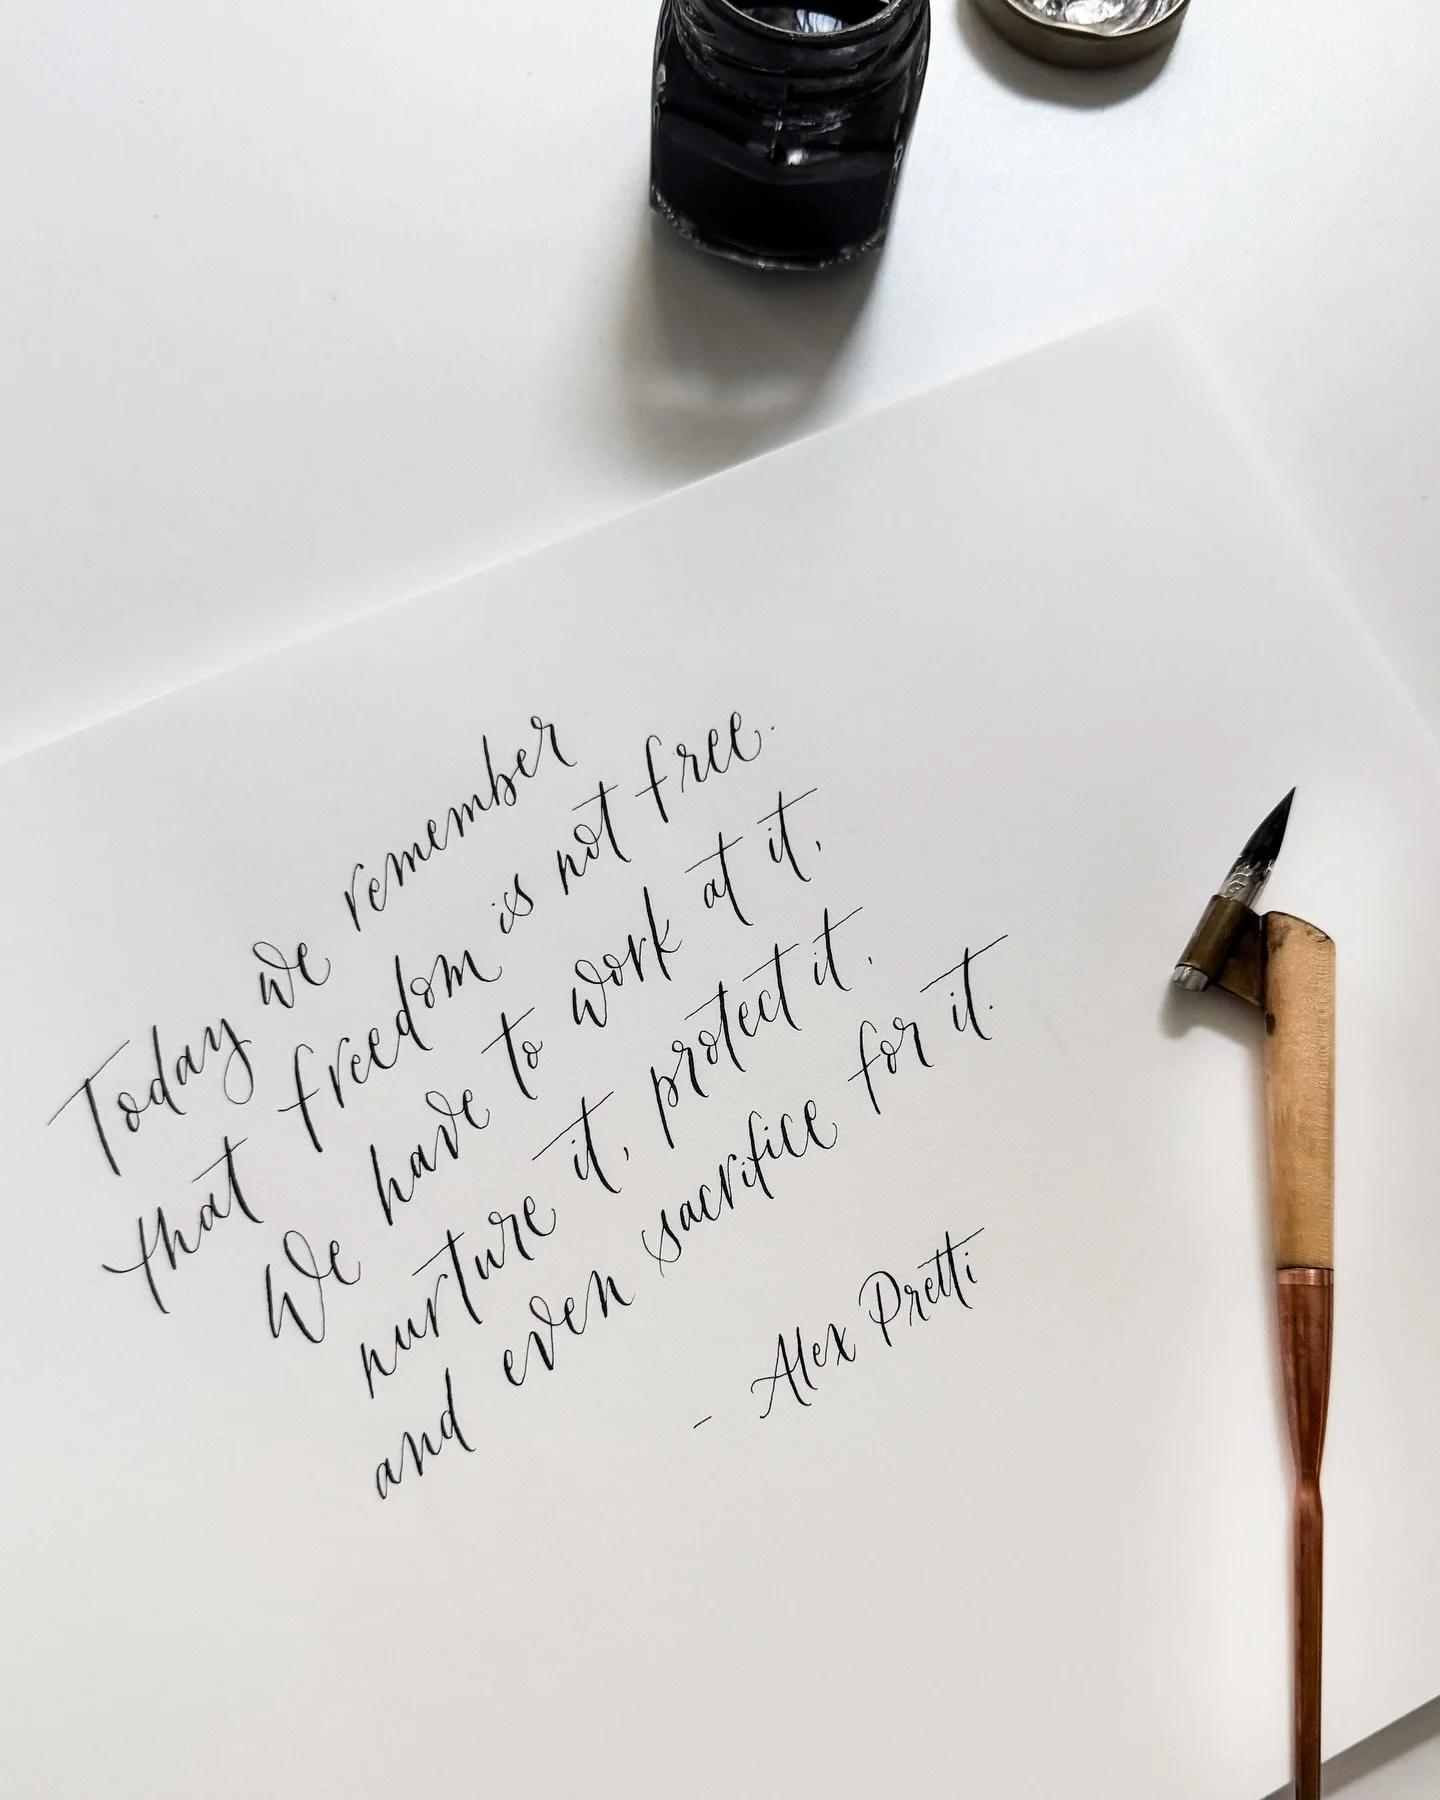 Today we remember
that freedom is not free.
We have to work at it,
nurture it, protect it,
and even sacrifice for it.
- Alex Pretti